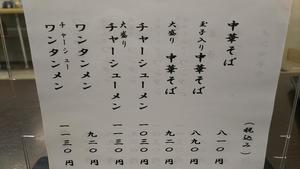 (税込み)
中華そば 八一〇円
玉子入り 中華そば 八九〇円
大盛り 中華そば 九二〇円
チャーシューメン 一〇三〇円
大盛り チャーシューメン 一一三〇円
ワンタンメン 九二〇円
チャーシュー ワンタンメン 一一三〇円